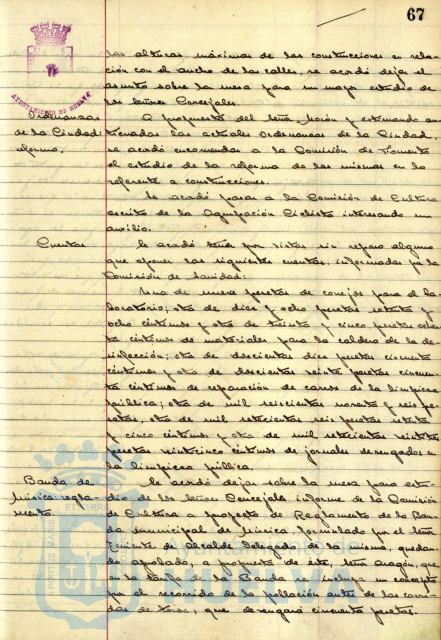 67
AYUNTAMIENTO DE HUELVA
las alturas máximas de las construcciones en rela-
ción con el ancho de las calles, se acordó dejar el
asunto sobre la mesa para un mejor estudio de
los Señores Concejales.
Ordenanzas
de la Ciudad:
reforma.
A propuesta del Señor y estimando an-
ticuadas las actuales Ordenanzas de la Ciudad,
se acordó encomendar a la Comisión de Fomento
el estudio de la reforma de las mismas en lo
referente a construcciones.
Se acordó pasar a la Comisión de Cultura
escrito de la Agrupación Ciclista interesando un
auxilio.
Cuentas
Se acordó tener por vistas sin reparo alguno
que oponer las siguientes cuentas, informadas por la
Comisión de Sanidad:
Una de nueve pesetas de conejos para el La-
boratorio; otra de diez y ocho pesetas setenta y
ocho céntimos y otra de treinta y cinco pesetas ochen-
ta céntimos de materiales para la caldera de la de-
sinfección; otra de doscientas diez pesetas cincuenta
céntimos y otra de doscientas veinte pesetas cincuen-
ta céntimos de reparación de carros de la limpieza
pública; otra de mil seiscientas noventa y seis pe-
setas, otra de mil setecientas seis pesetas setenta
y cinco céntimos y otra de mil setecientas veintitres
pesetas veinticinco céntimos de jornales devengados en
la limpieza pública.
Banda de
Música: regla-
mento.
Se acordó dejar sobre la mesa para estu-
dio de los Señores Concejales informe de la Comisión
de Cultura a proyecto de Reglamento de la Ban-
da municipal de Música, formulado por el Señor
Teniente de Alcalde delegado de la misma, quedan-
do aprobado, a propuesta de éste, Señor Aragón, que
en la tarifa de la Banda se incluya un concepto
por el recorrido de la población antes de las corri-
das de toros, que devengará cincuenta pesetas.